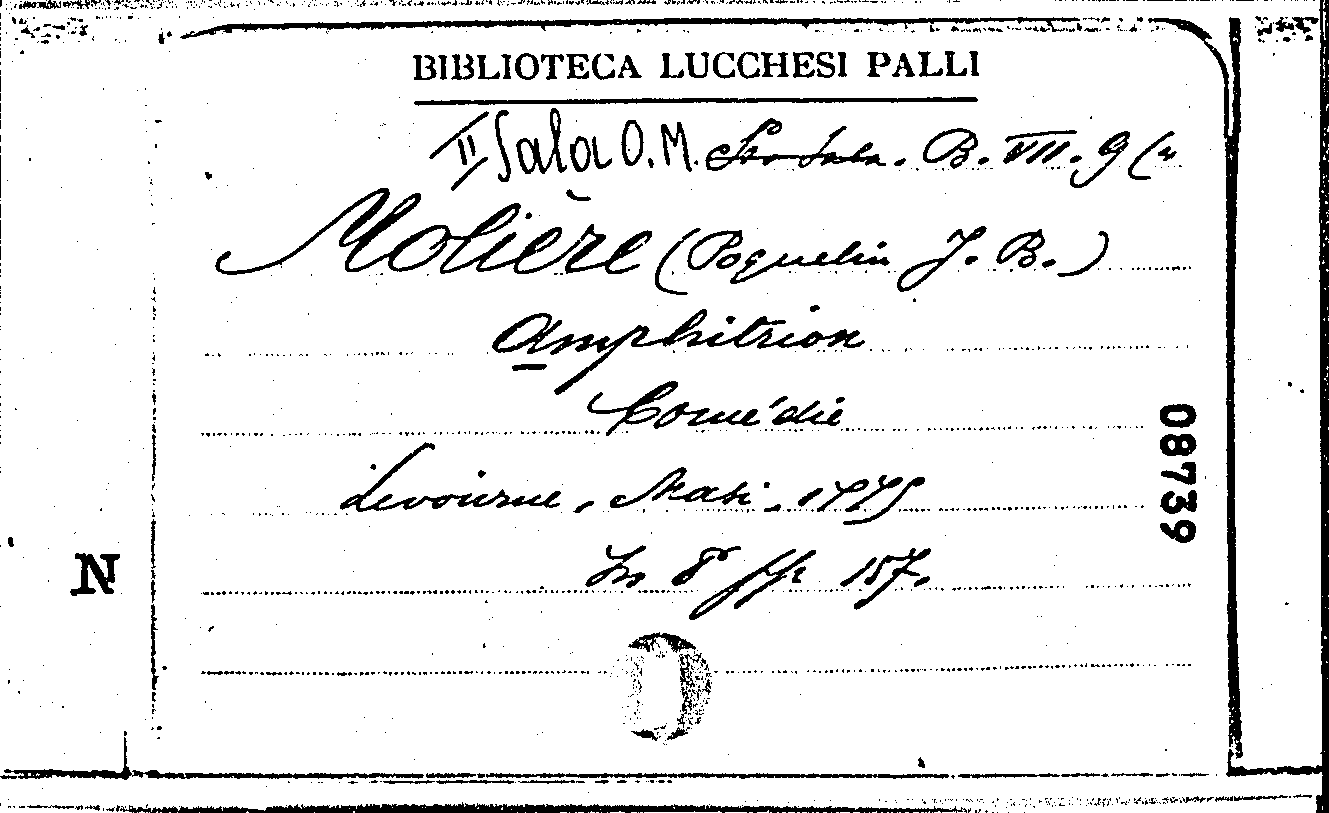 BIBLIOTECA LUCCHESI PALLI
II Sala O. M. Sala. B. VII. 9 (
Molière (Poquelin J. B.)
Amphitrion
Comédie
Livourne, Masi, 1775
In 8° pp 157.
08739
N